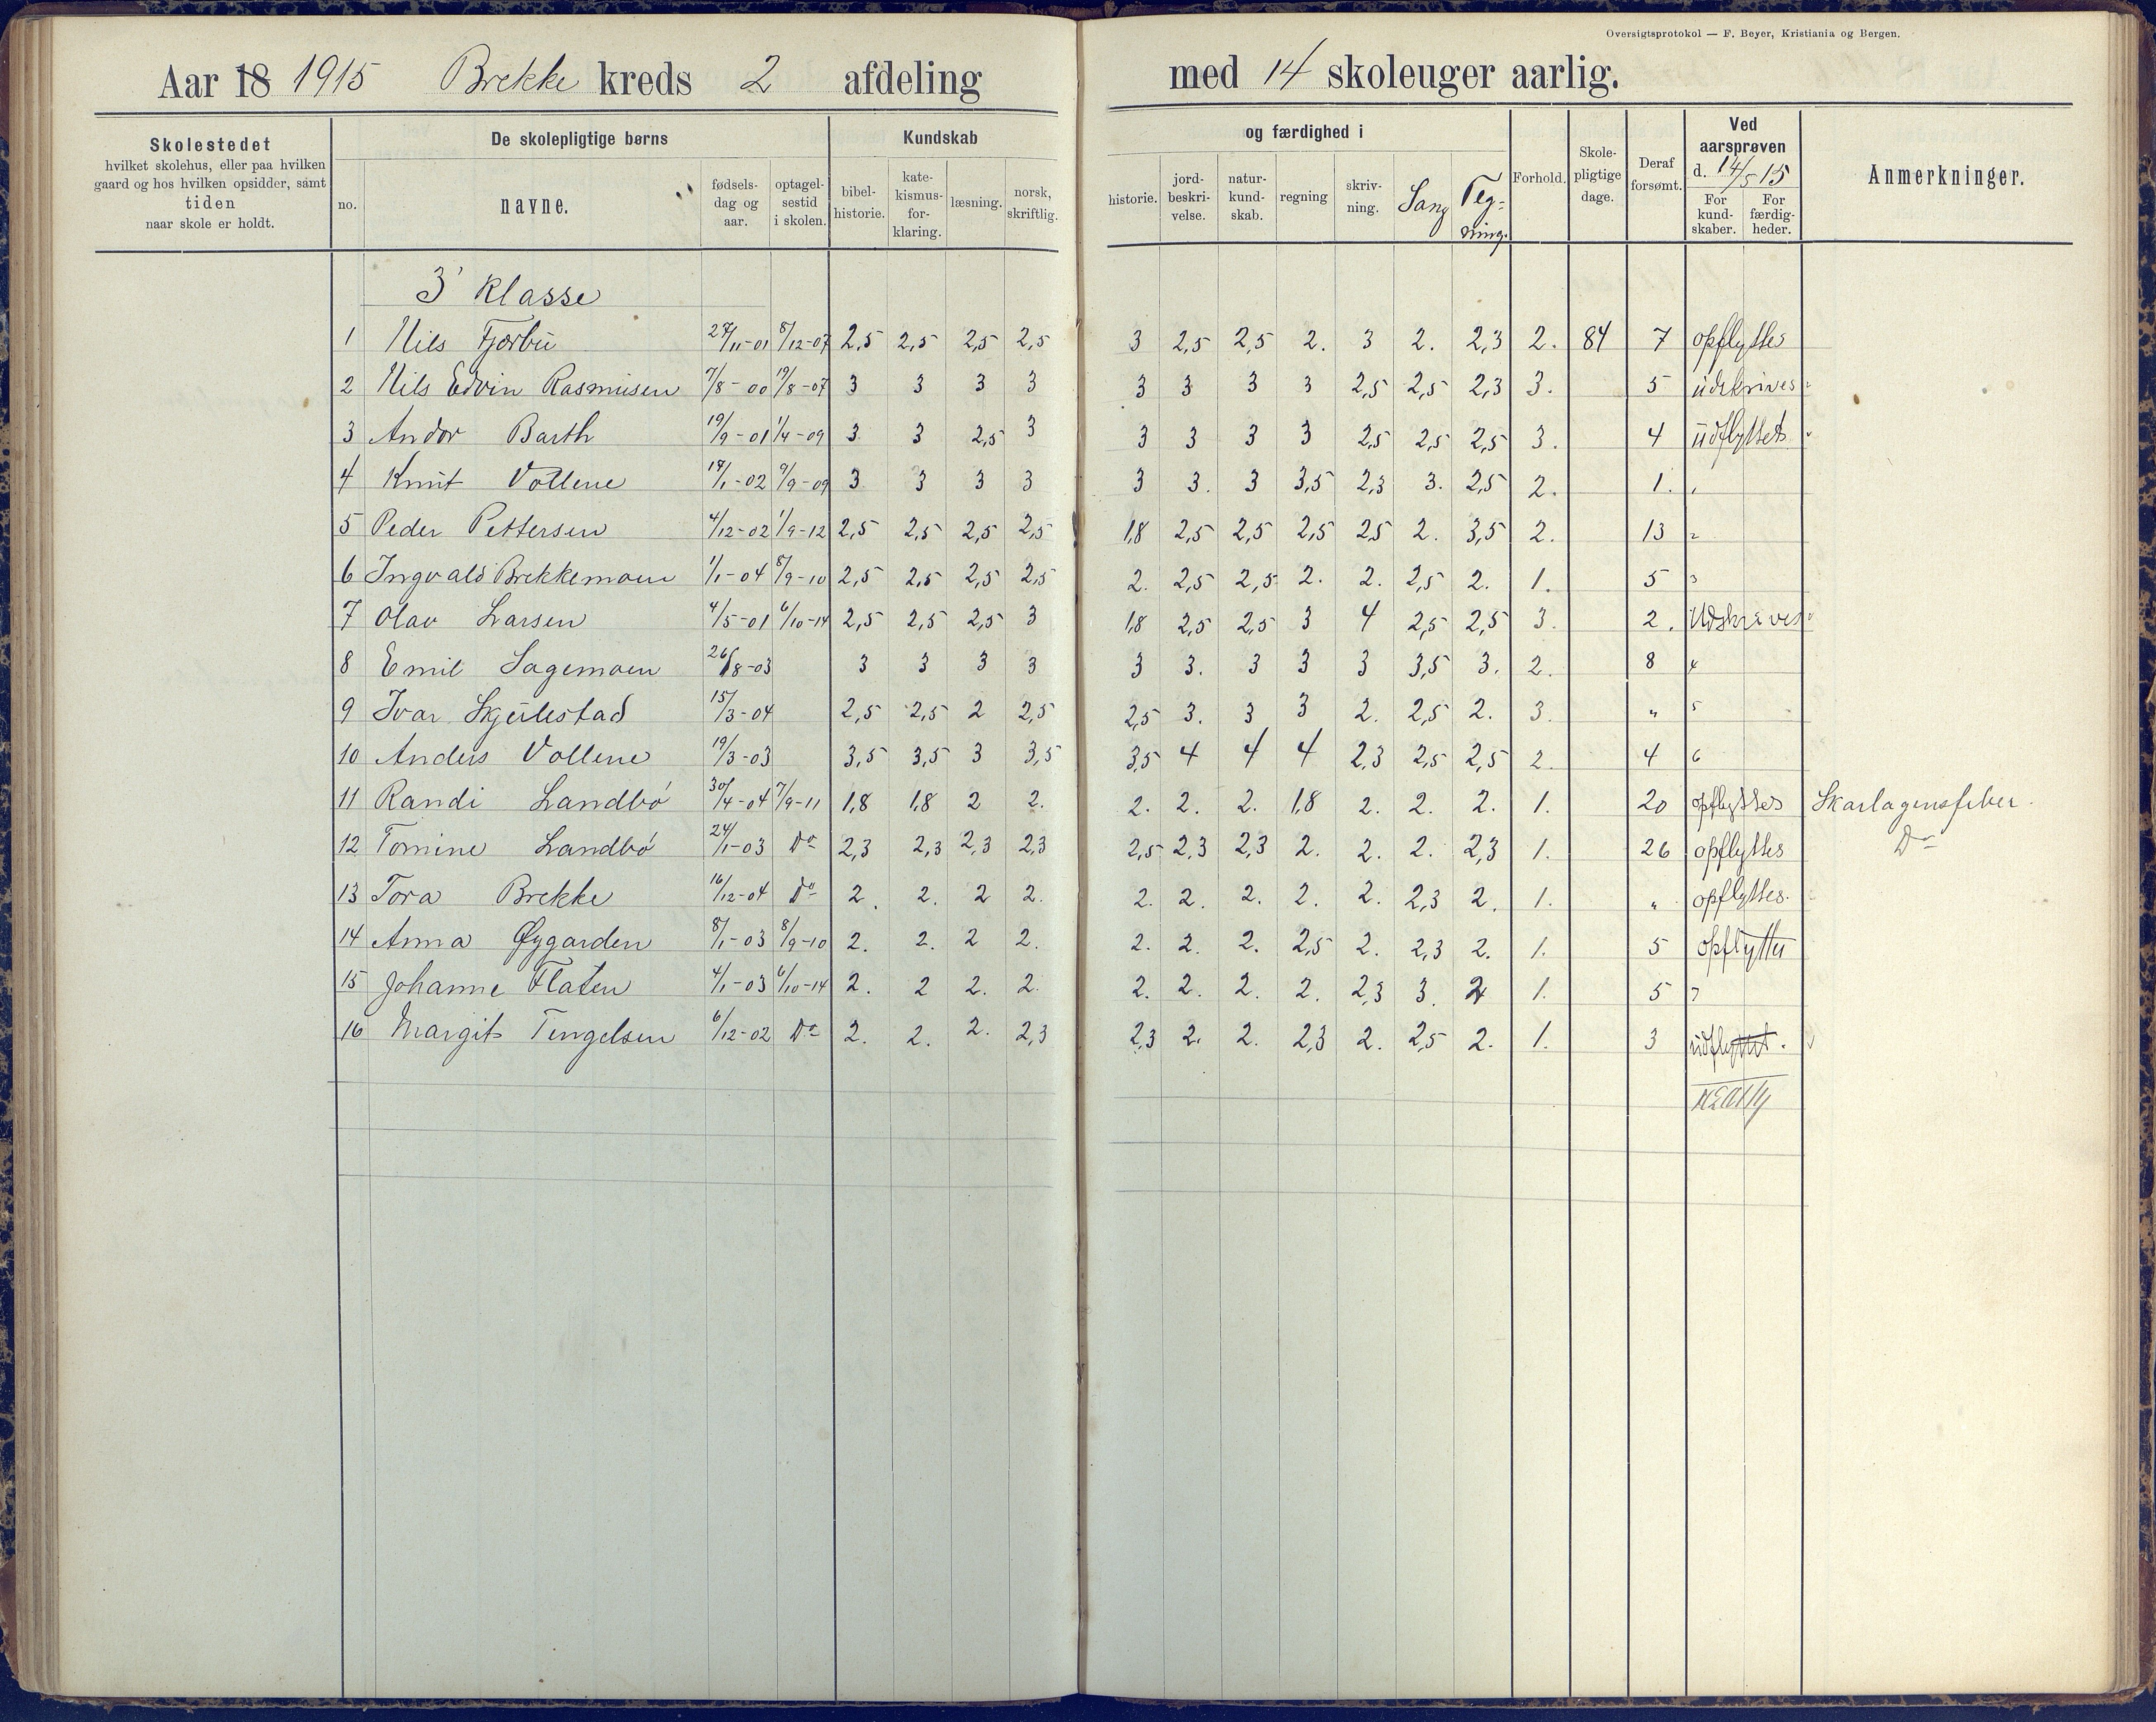 Oversigtsprotokol — F. Beyer, Kristiania og Bergen.
Aar 18 1915 Brekke kreds 2 afdeling med 14 skoleuger aarlig.
Skolestedet
hvilket skolehus, eller paa hvilken
gaard og hos hvilken opsidder, samt
tiden
naar skole er holdt.
De skolepligtige børns
no.
navne.
fødsels-
dag og
aar.
optagel-
sestid
i skolen.
Kundskab
bibel-
historie.
kate-
kismus-
for-
klaring.
læsning.
norsk,
skriftlig.
og færdighed i
historie.
jord-
beskri-
velse.
natur-
kund-
skab.
regning
skriv-
ning.
Sang
Teg-
ning.
Forhold.
Skole-
pligtige
dage.
Deraf
forsømt.
Ved
aarsprøven
d. 14/5 15
For
kund-
skaber.
For
færdig-
heder.
Anmerkninger.
3' Klasse
1 Nils Fjørbu 27/11-01 8/12-07 2,5 2,5 2,5 2,5 3 2,5 2,5 2. 3 2. 2,3 2. 84 7 opflyttes
2 Nils Edvin Rasmusen 7/8-00 19/8-07 3 3 3 3 3 3 3 3 2,5 2,5 2,3 3. 5 udskrives
3 Andor Barth 19/9-01 1/4-09 3 3 2,5 3 3 3 3 3 2,5 2,5 2,5 3. 4 udflyttet
4 Knut Vollene 17/1-02 9/9-09 3 3 3 3 3 3. 3 3,5 2,3 3. 2,5 2. 1. 1
5 Peder Pettersen 4/12-02 1/9-12 2,5 2,5 2,5 2,5 1,8 2,5 2,5 2,5 2,5 2. 3,5 2. 13 2
6 Ingvald Brekkemoen 1/1-04 8/9-10 2,5 2,5 2,5 2,5 2. 2,5 2,5 2. 2. 2,5 2. 1. 5 3
7 Olav Larsen 4/5-01 6/10-14 2,5 2,5 2,5 3 1,8 2,5 2,5 3 4 2,5 2,5 3. 2. Udskrives
8 Emil Sagemoen 26/8-03 3 3 3 3 3 3. 3 3 3 3,5 3. 2. 8 4
9 Ivar Skjulestad 15/3-04 2,5 2,5 2 2,5 2,5 3. 3 3 2. 2,5 2. 3. " 5
10 Anders Vollene 19/3-03 3,5 3,5 3 3,5 3,5 4 4 4 2,3 2,5 2,5 2. 4 6
11 Randi Landbö 30/4-04 7/9-11 1,8 1,8 2 2. 2. 2. 2. 1,8 2. 2. 2. 1. 20 opflyttes Skarlagensfeber.
12 Tomine Landbö 24/1-03 Do 2,3 2,3 2,3 2,3 2,5 2,3 2,3 2. 2. 2. 2,3 1. 26 opflyttes Do
13 Tora Brekke 16/12-04 Do 2. 2. 2 2. 2. 2. 2. 2. 2. 2,3 2. 1. " opflyttes.
14 Anna Øygarden 8/1-03 8/9-10 2. 2. 2 2. 2. 2. 2. 2,5 2. 2,3 2. 1. 5 opflyttes
15 Johanne Flaten 4/1-03 6/10-14 2. 2 2. 2. 2. 2. 2. 2. 2,3 3. 2 1. 5 7
16 Margit Tengelsen 6/12-02 Do 2. 2. 2. 2,3 2,3 2. 2. 2,3 2. 2,5 2. 1. 3 udflyttet.